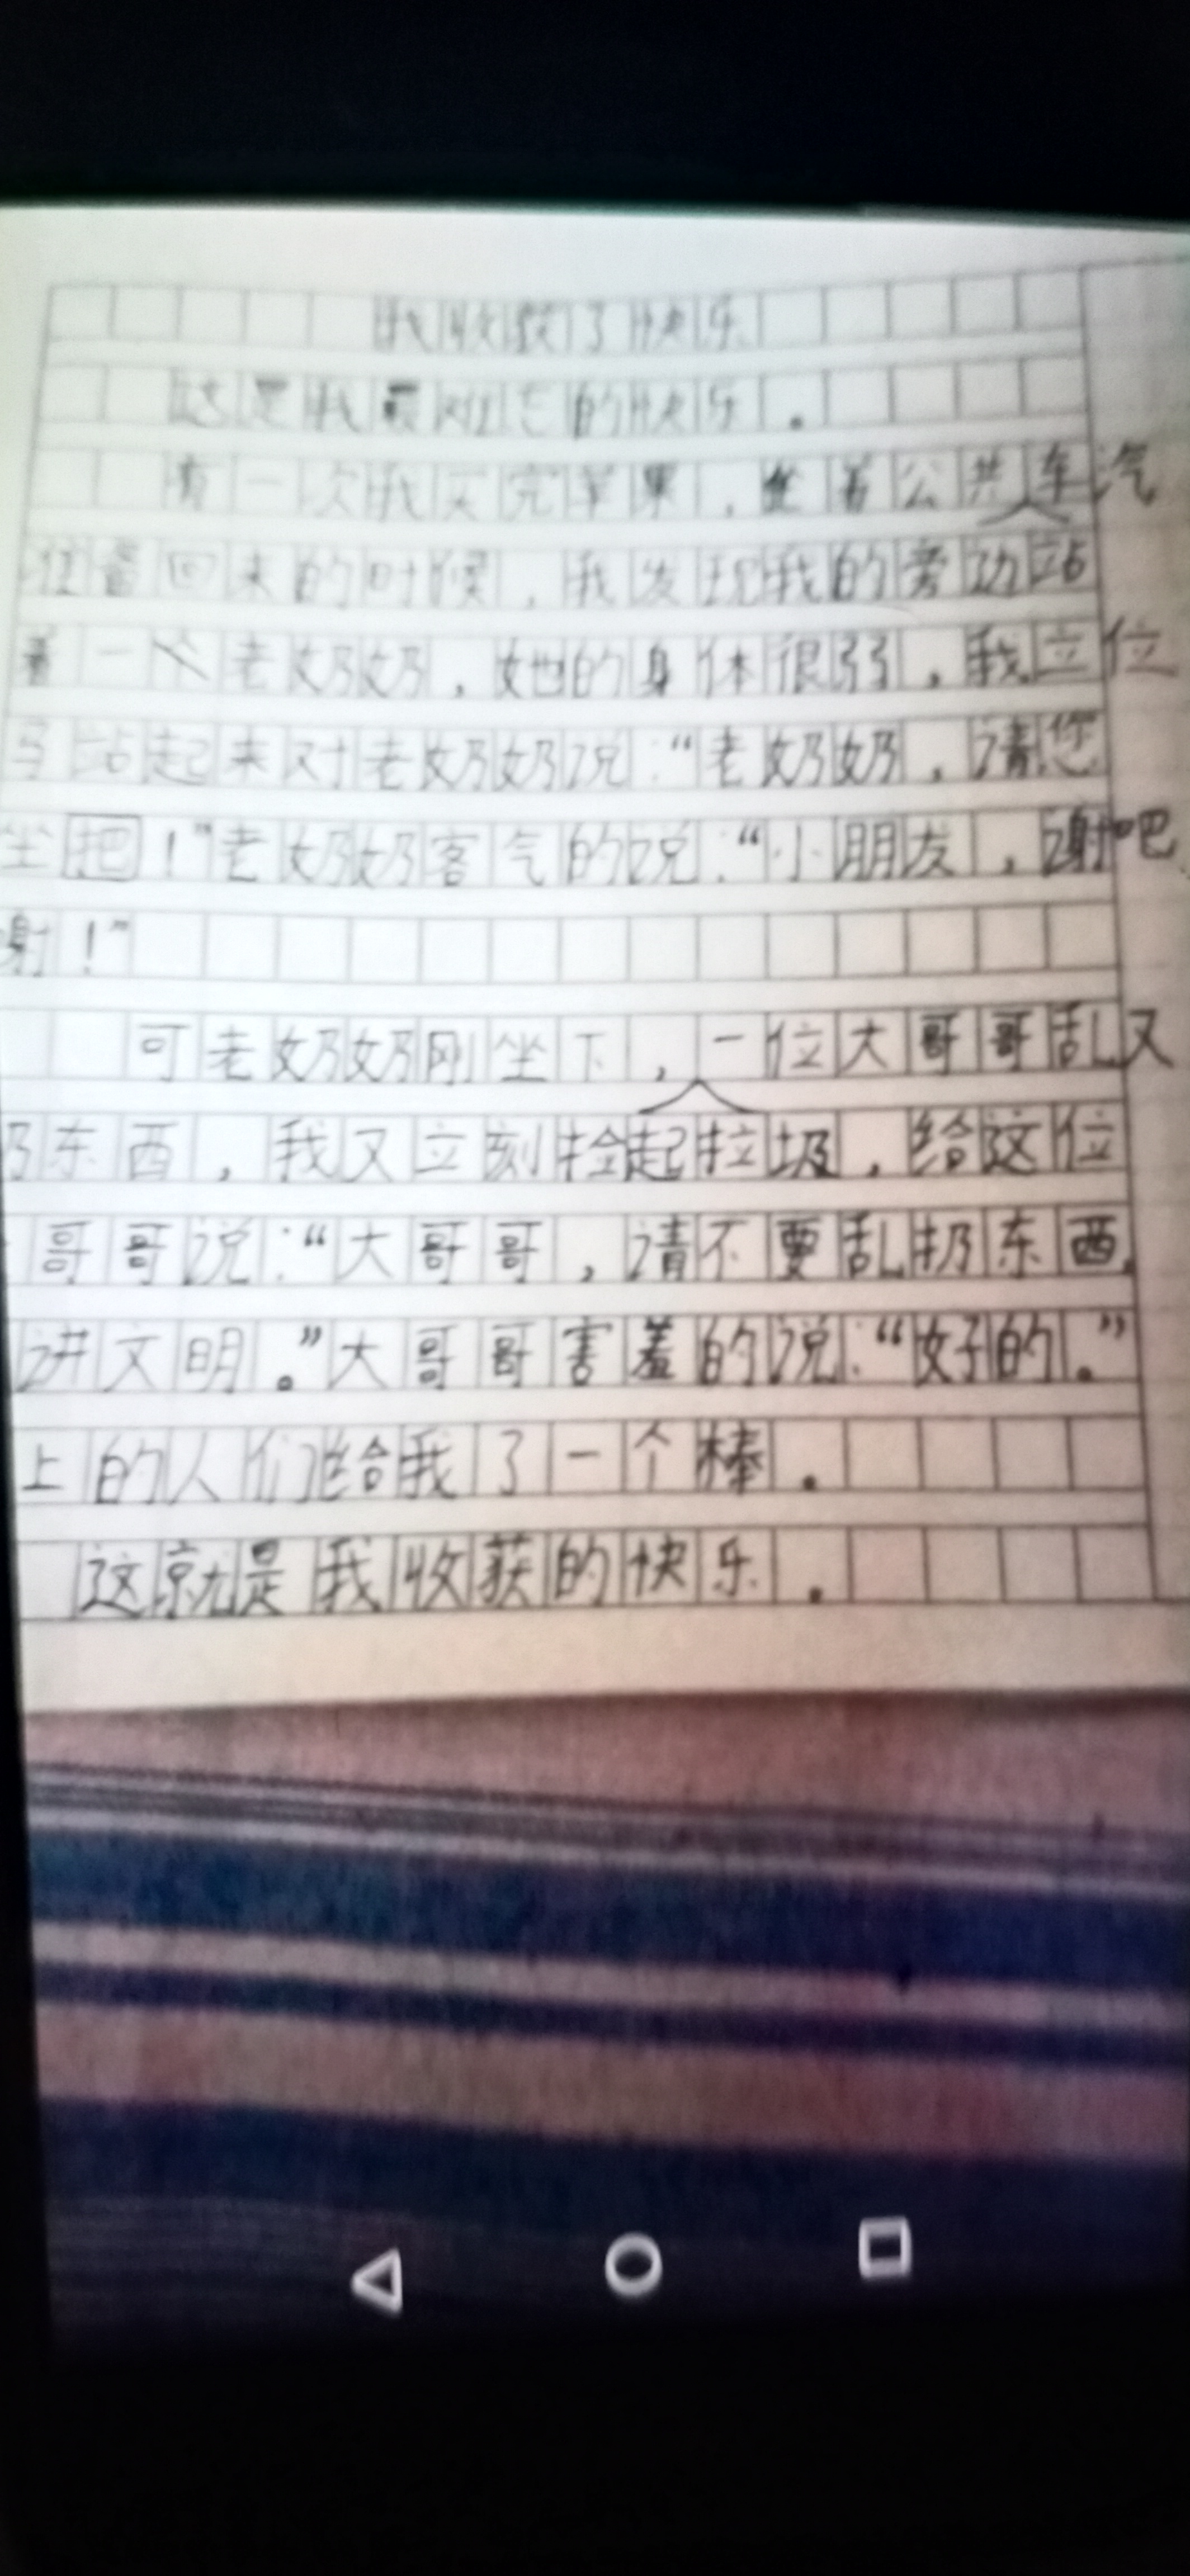 我收获了快乐
这是我最难忘的快乐。
有一次我买完苹果,坐着公共车汽
往着回来的时候,我发现我的旁边站
着一个老奶奶,她的身体很弱,我立位
马站起来对老奶奶说:“老奶奶,请您
坐把!”老奶奶客气的说:“小朋友,谢吧
谢!”
可老奶奶刚坐下,一位大哥哥乱又
扔东西,我又立刻捡起拉圾,给这位
哥哥说:“大哥哥,请不要乱扔东西,
讲文明。”大哥哥害羞的说:“好的。”
上的人们给我了一个棒。
这就是我收获的快乐。